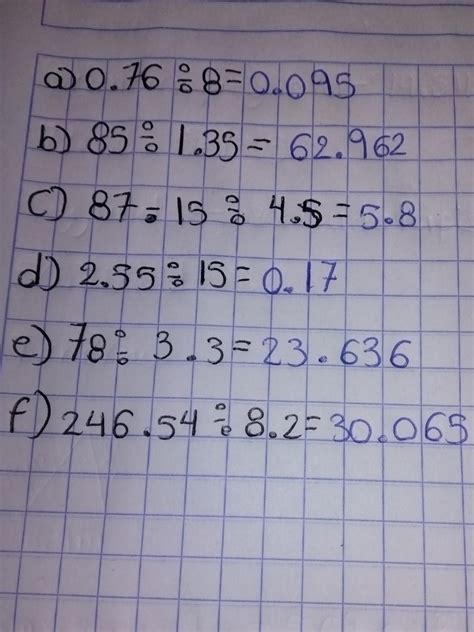 a) 0.76 ÷ 8 = 0.095
b) 85 ÷ 1.35 = 62.962
c) 87 ÷ 15 ÷ 4.5 = 5.8
d) 2.55 ÷ 15 = 0.17
e) 78 ÷ 3.3 = 23.636
f) 246.54 ÷ 8.2 = 30.065